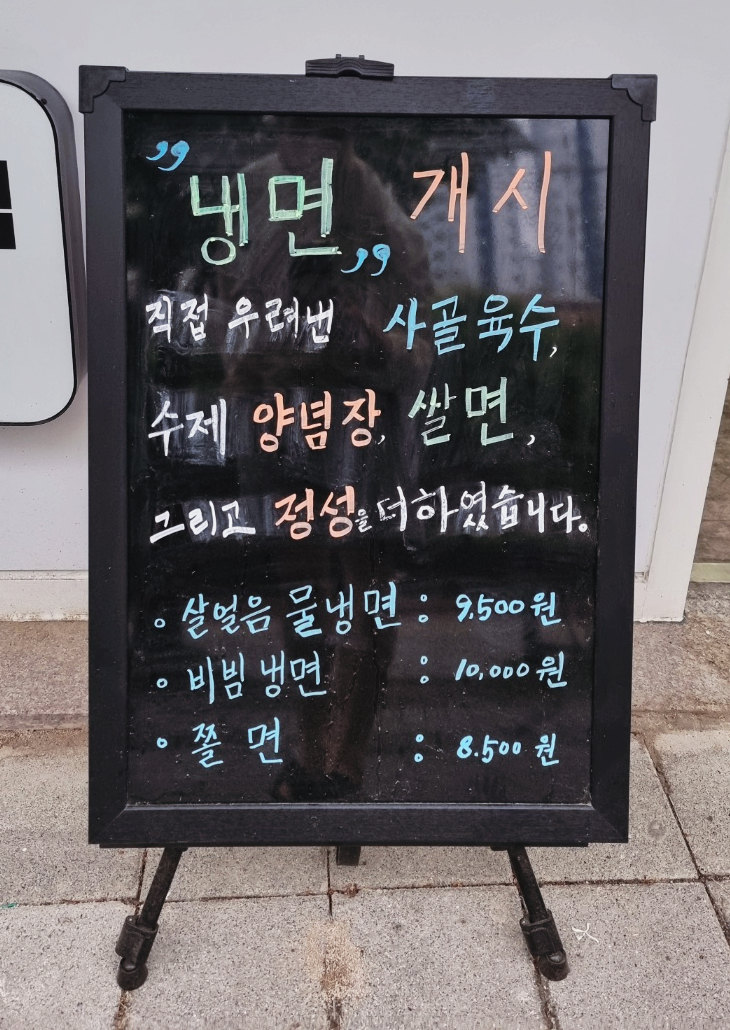 "냉면" 개시
직접 우려낸 사골육수,
수제 양념장, 쌀면,
그리고 정성을 더하였습니다.
o 살얼음 물냉면 : 9,500원
o 비빔냉면 : 10,000원
o 쫄면 : 8.500원